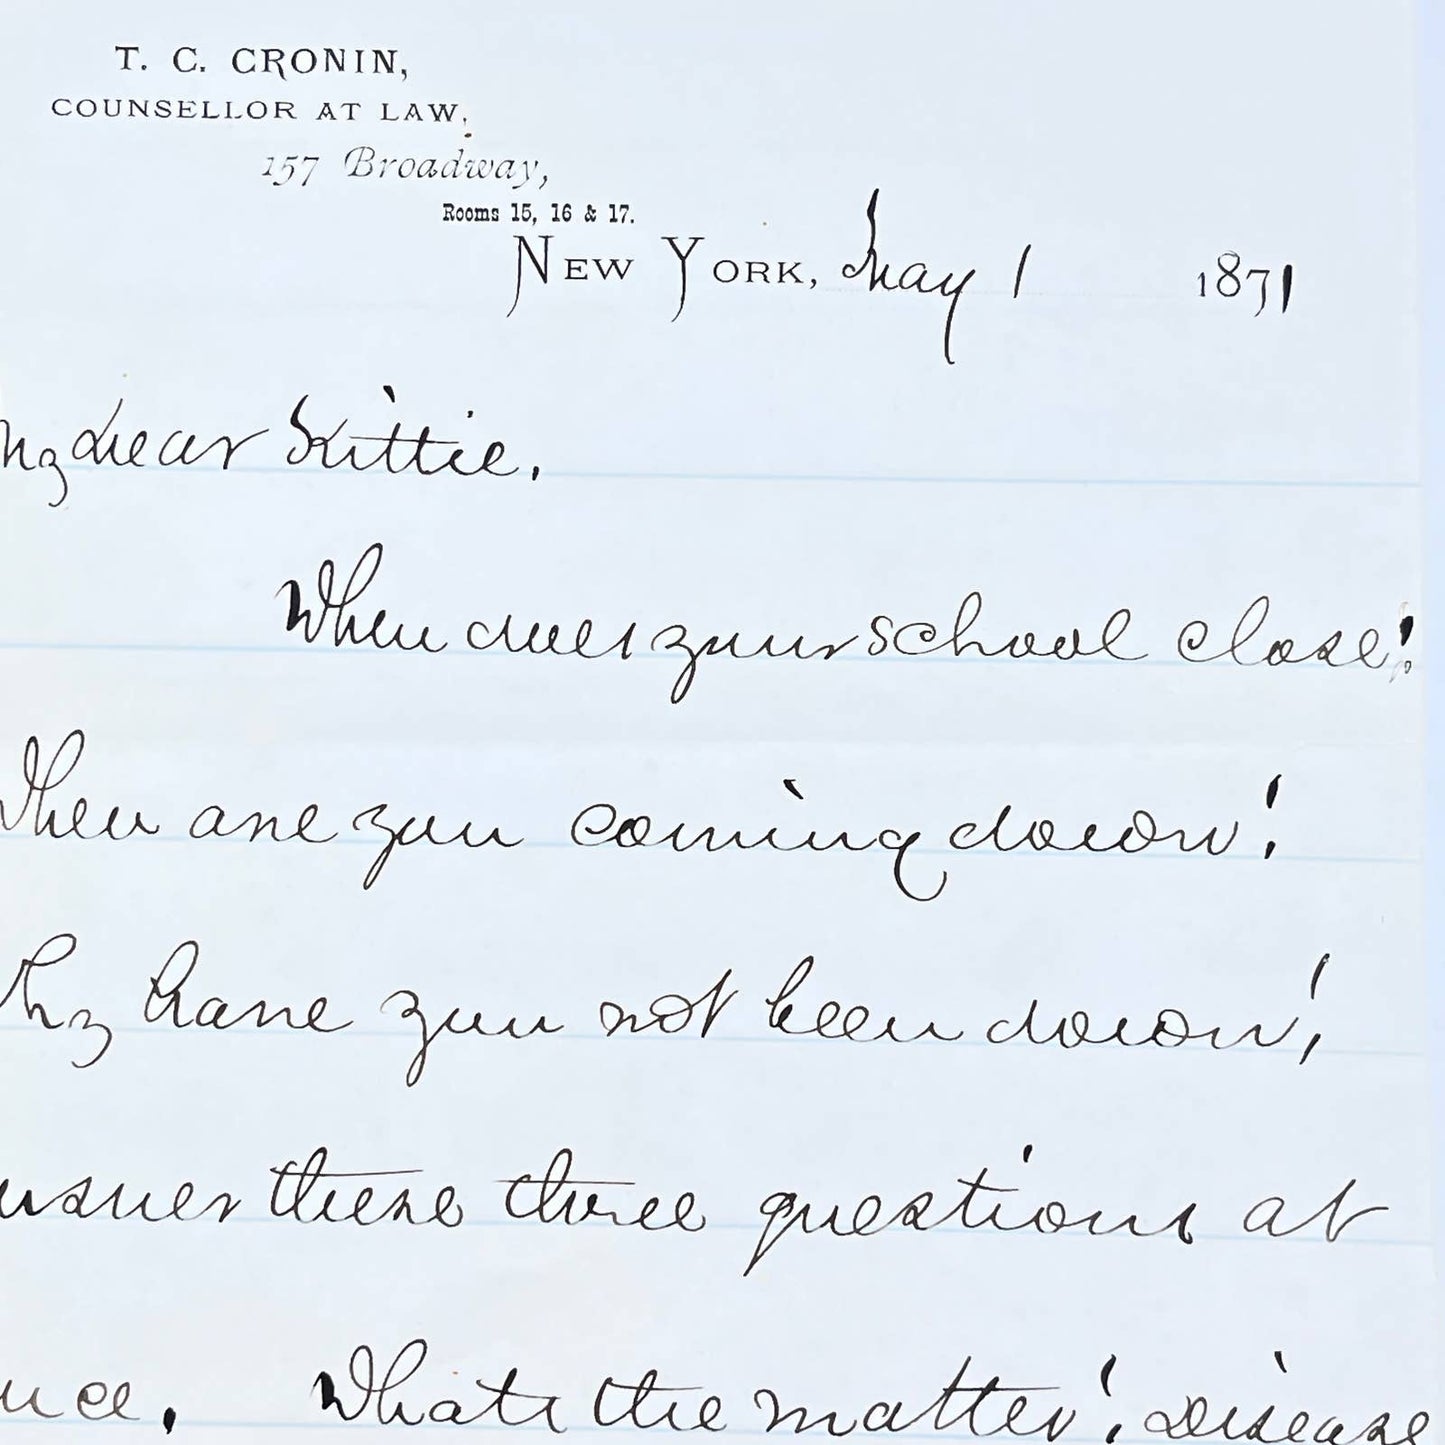 T. C. CRONIN,
COUNSELLOR AT LAW,
157 Broadway,
Rooms 15, 16 & 17.
NEW YORK, May 1 1871
My dear Kittie,
When does your school close!
When are you coming down!
Why have you not been down!
answer these three questions at
once. Whats the matter! Disease